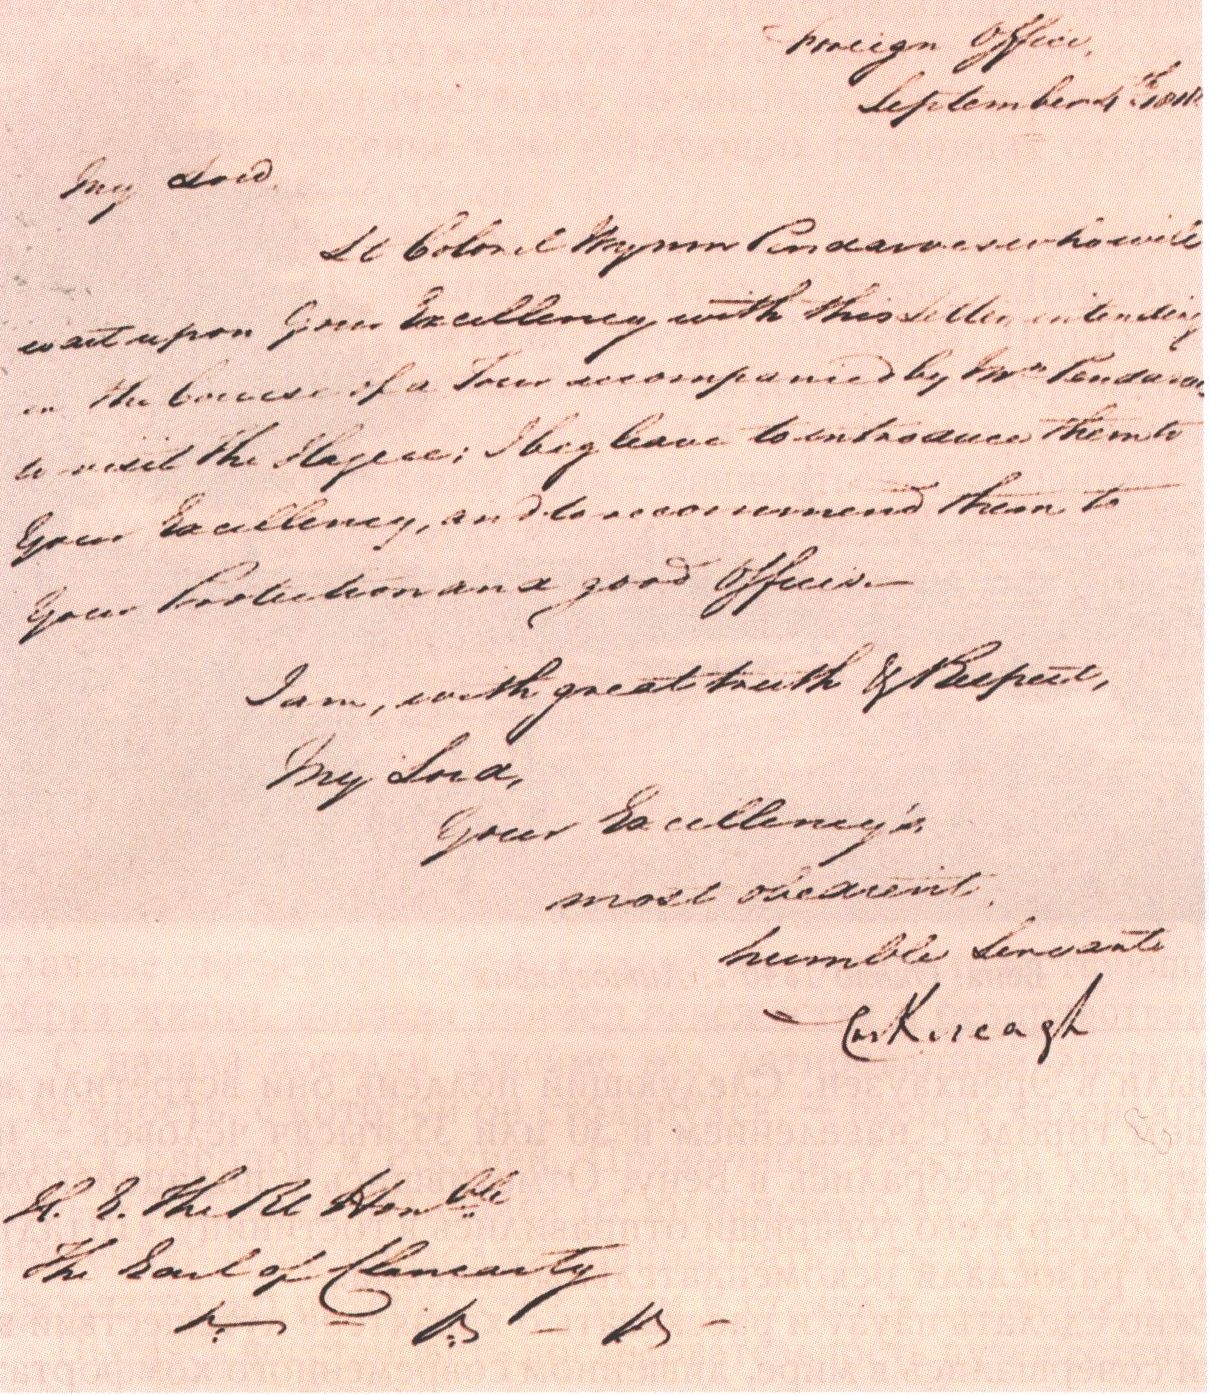 Foreign Office,
September 4th
My Lord,
Lt Colonel Wynn Pendarves who will
wait upon Your Excellency with this Letter, intending
in the Course of a Tour accompanied by Mrs Pendarves
to visit the Hague; I beg leave to introduce them to
Your Excellency, and to recommend them to
Your Protection and good Offices.—
I am, with great truth & Respect,
My Lord,
Your Excellency's
most obedient,
humble Servant
H. E. The Rt Honble
The Earl of Clancarty